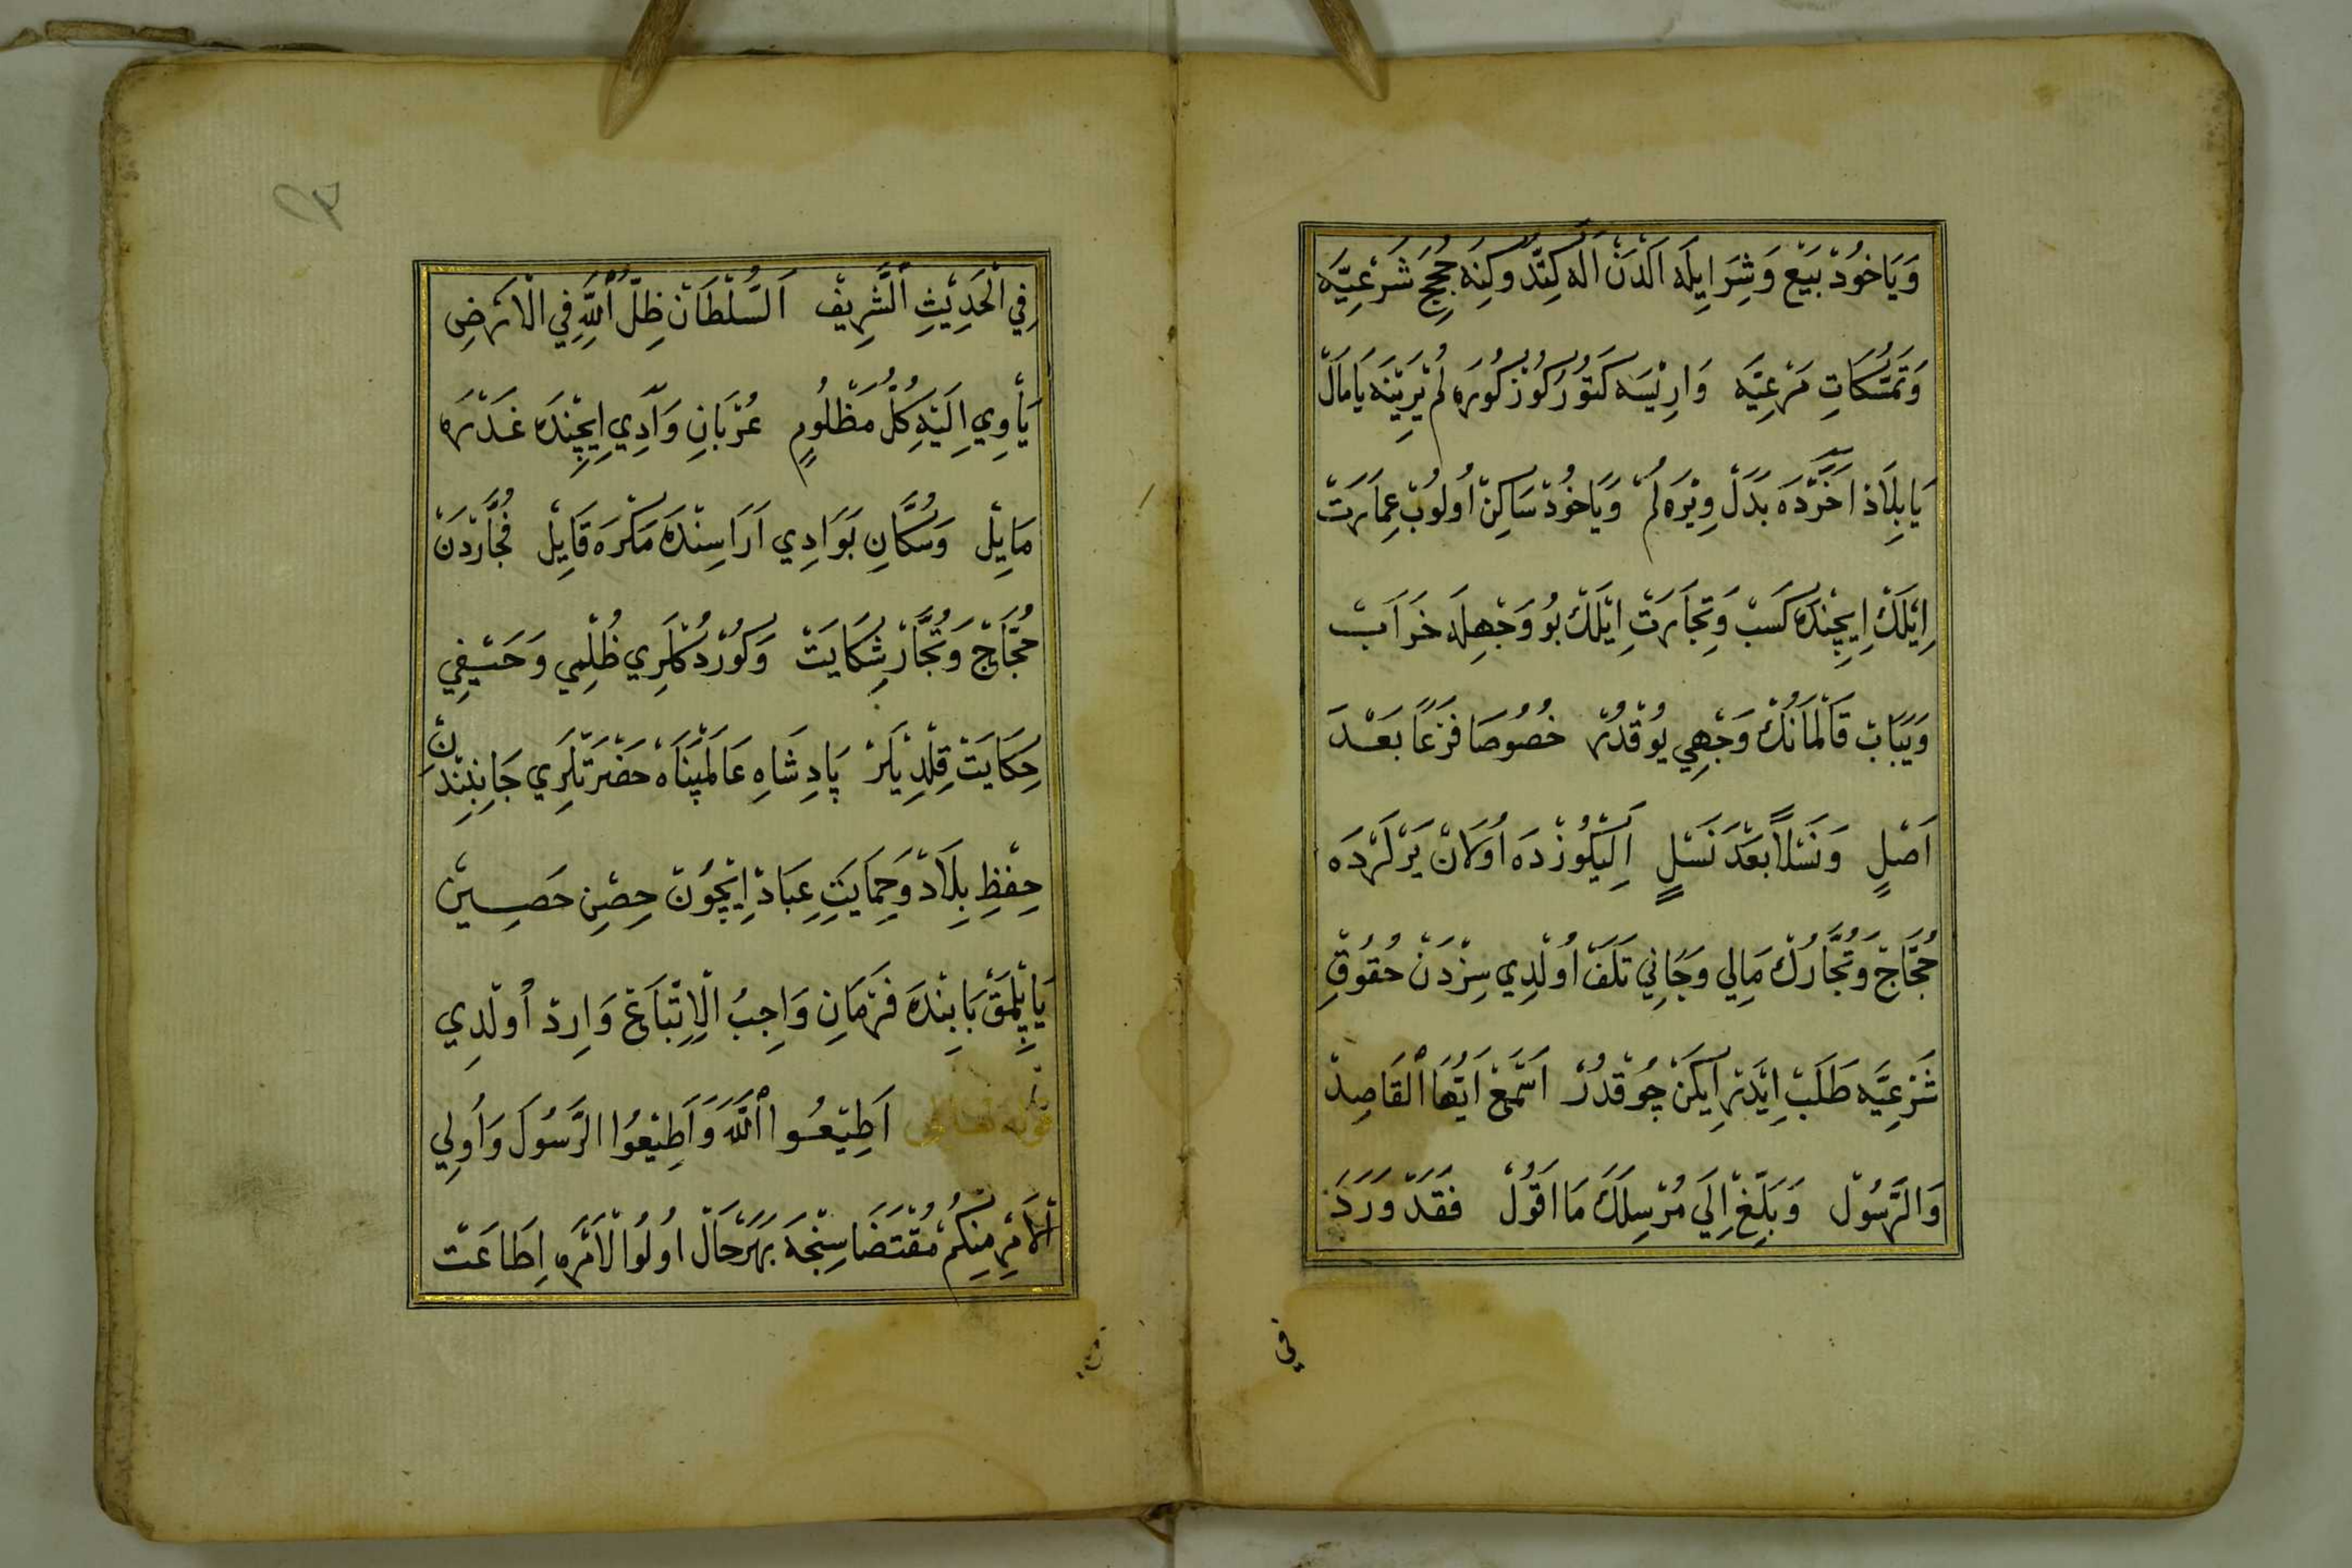 وَيَاخُودْ بَيْع وَشِرَا اِيلَه اَلْدَنْ اَلَه كِتْدُوكِنَه حُجَجِ شَرْعِيَّه
وَتَمَسُّكَاتِ مَرْعِيَّه وَارِيْسَه كَتُورُكُوزْ كُورَه لُمْ يَرِيْنَه يَا مَالْ
يَا بِلَادْ اٰخَرْدَه بَدَلْ وِيْرَه لُمْ وَيَاخُودْ سَاكِنْ اُولُوبْ عِمَارَتْ
اِيْلَكْ اِيچِنْدَه كَسَبْ وَتِجَارَتْ اِيْلَكْ بُو وَجْهِلَه خَرَابْ
وَيَبَابْ قَالْمَانُكْ وَجْهِي يُوقْدُرْ خُصُوصَا فَرْعًا بَعْدَ
اَصْلٍ وَنَسْلًا بَعْدَ نَسْلٍ اَلِيْكُوزْدَه اُولَانْ يَرْلَرْدَه
حُجَّاجْ وَتُجَّارُكْ مَالِي وَجَانِي تَلَفْ اُولْدِي سِزْدَنْ حُقُوقِ
شَرْعِيَّه طَلَبْ اِيْدَرْ اِيكَنْ چُوقْدُرْ اَسْمِعْ اَيُّهَا الْقَاصِدْ
وَالرَّسُولْ وَبَلِّغْ اِلَي مُرْسِلَكَ مَا اَقُولْ فَقَدْ وَرَدَ
فِي
فِي الْحَدِيْثِ الشَّرِيفْ اَلسُّلْطَانْ ظِلُّ اللّٰهِ فِي الْاَرْضِ
يَأْوِي اِلَيْهِ كُلُّ مَظْلُومٍ عُرْبَانِ وَادِي اِيچِنْدَه غَدْرَه
مَايِلْ وَسُكَّانِ بَوَادِي اَرَاسِنْدَه مَكْرَه قَايِلْ فُجَّارْدَنْ
حُجَّاجْ وَتُجَّارْ شِكَايَتْ وَكُورْدُكْلَرِي ظُلْمِي وَحَيْفِي
حِكَايَتْ قِلْدِيْلَرْ پَادِشَاهِ عَالَمْپَنَاه حَضْرَتْلَرِي جَانِبِنْدَنْ
حِفْظِ بِلَادْ وَحِمَايَتِ عِبَادْ اِيْچُونْ حِصْنِ حَصِينْ
يَاپِلْمَقْ بَابِنْدَه فَرْمَانِ وَاجِبُ الْاِتِّبَاعْ وَارِدْ اُولْدِي
قوله تعالى اَطِيْعُوا اللّٰهَ وَاَطِيْعُوا الرَّسُولَ وَاُولِي
الْاَمْرِ مِنْكُمْ مُقْتَضَاسِنْجَه بَهَرْحَالْ اُولُوا الْاَمْرَه اِطَاعَتْ